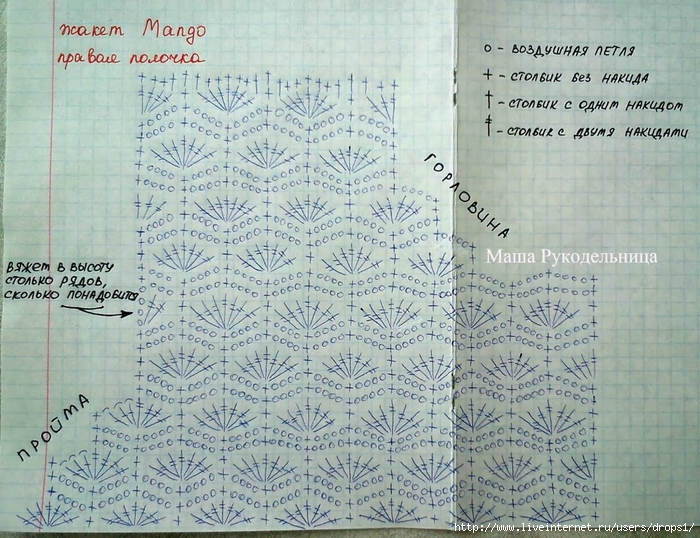 жакет Манго
правая полочка
о - ВОЗДУШНАЯ ПЕТЛЯ
+ - СТОЛБИК БЕЗ НАКИДА
† - СТОЛБИК С ОДНИМ НАКИДОМ
‡ - СТОЛБИК С ДВУМЯ НАКИДАМИ
ГОРЛОВИНА
Маша Рукодельница
ВЯЖЕМ В ВЫСОТУ
СТОЛЬКО РЯДОВ,
СКОЛЬКО ПОНАДОБИТСЯ
ПРОЙМА
http://www.liveinternet.ru/users/drops1/